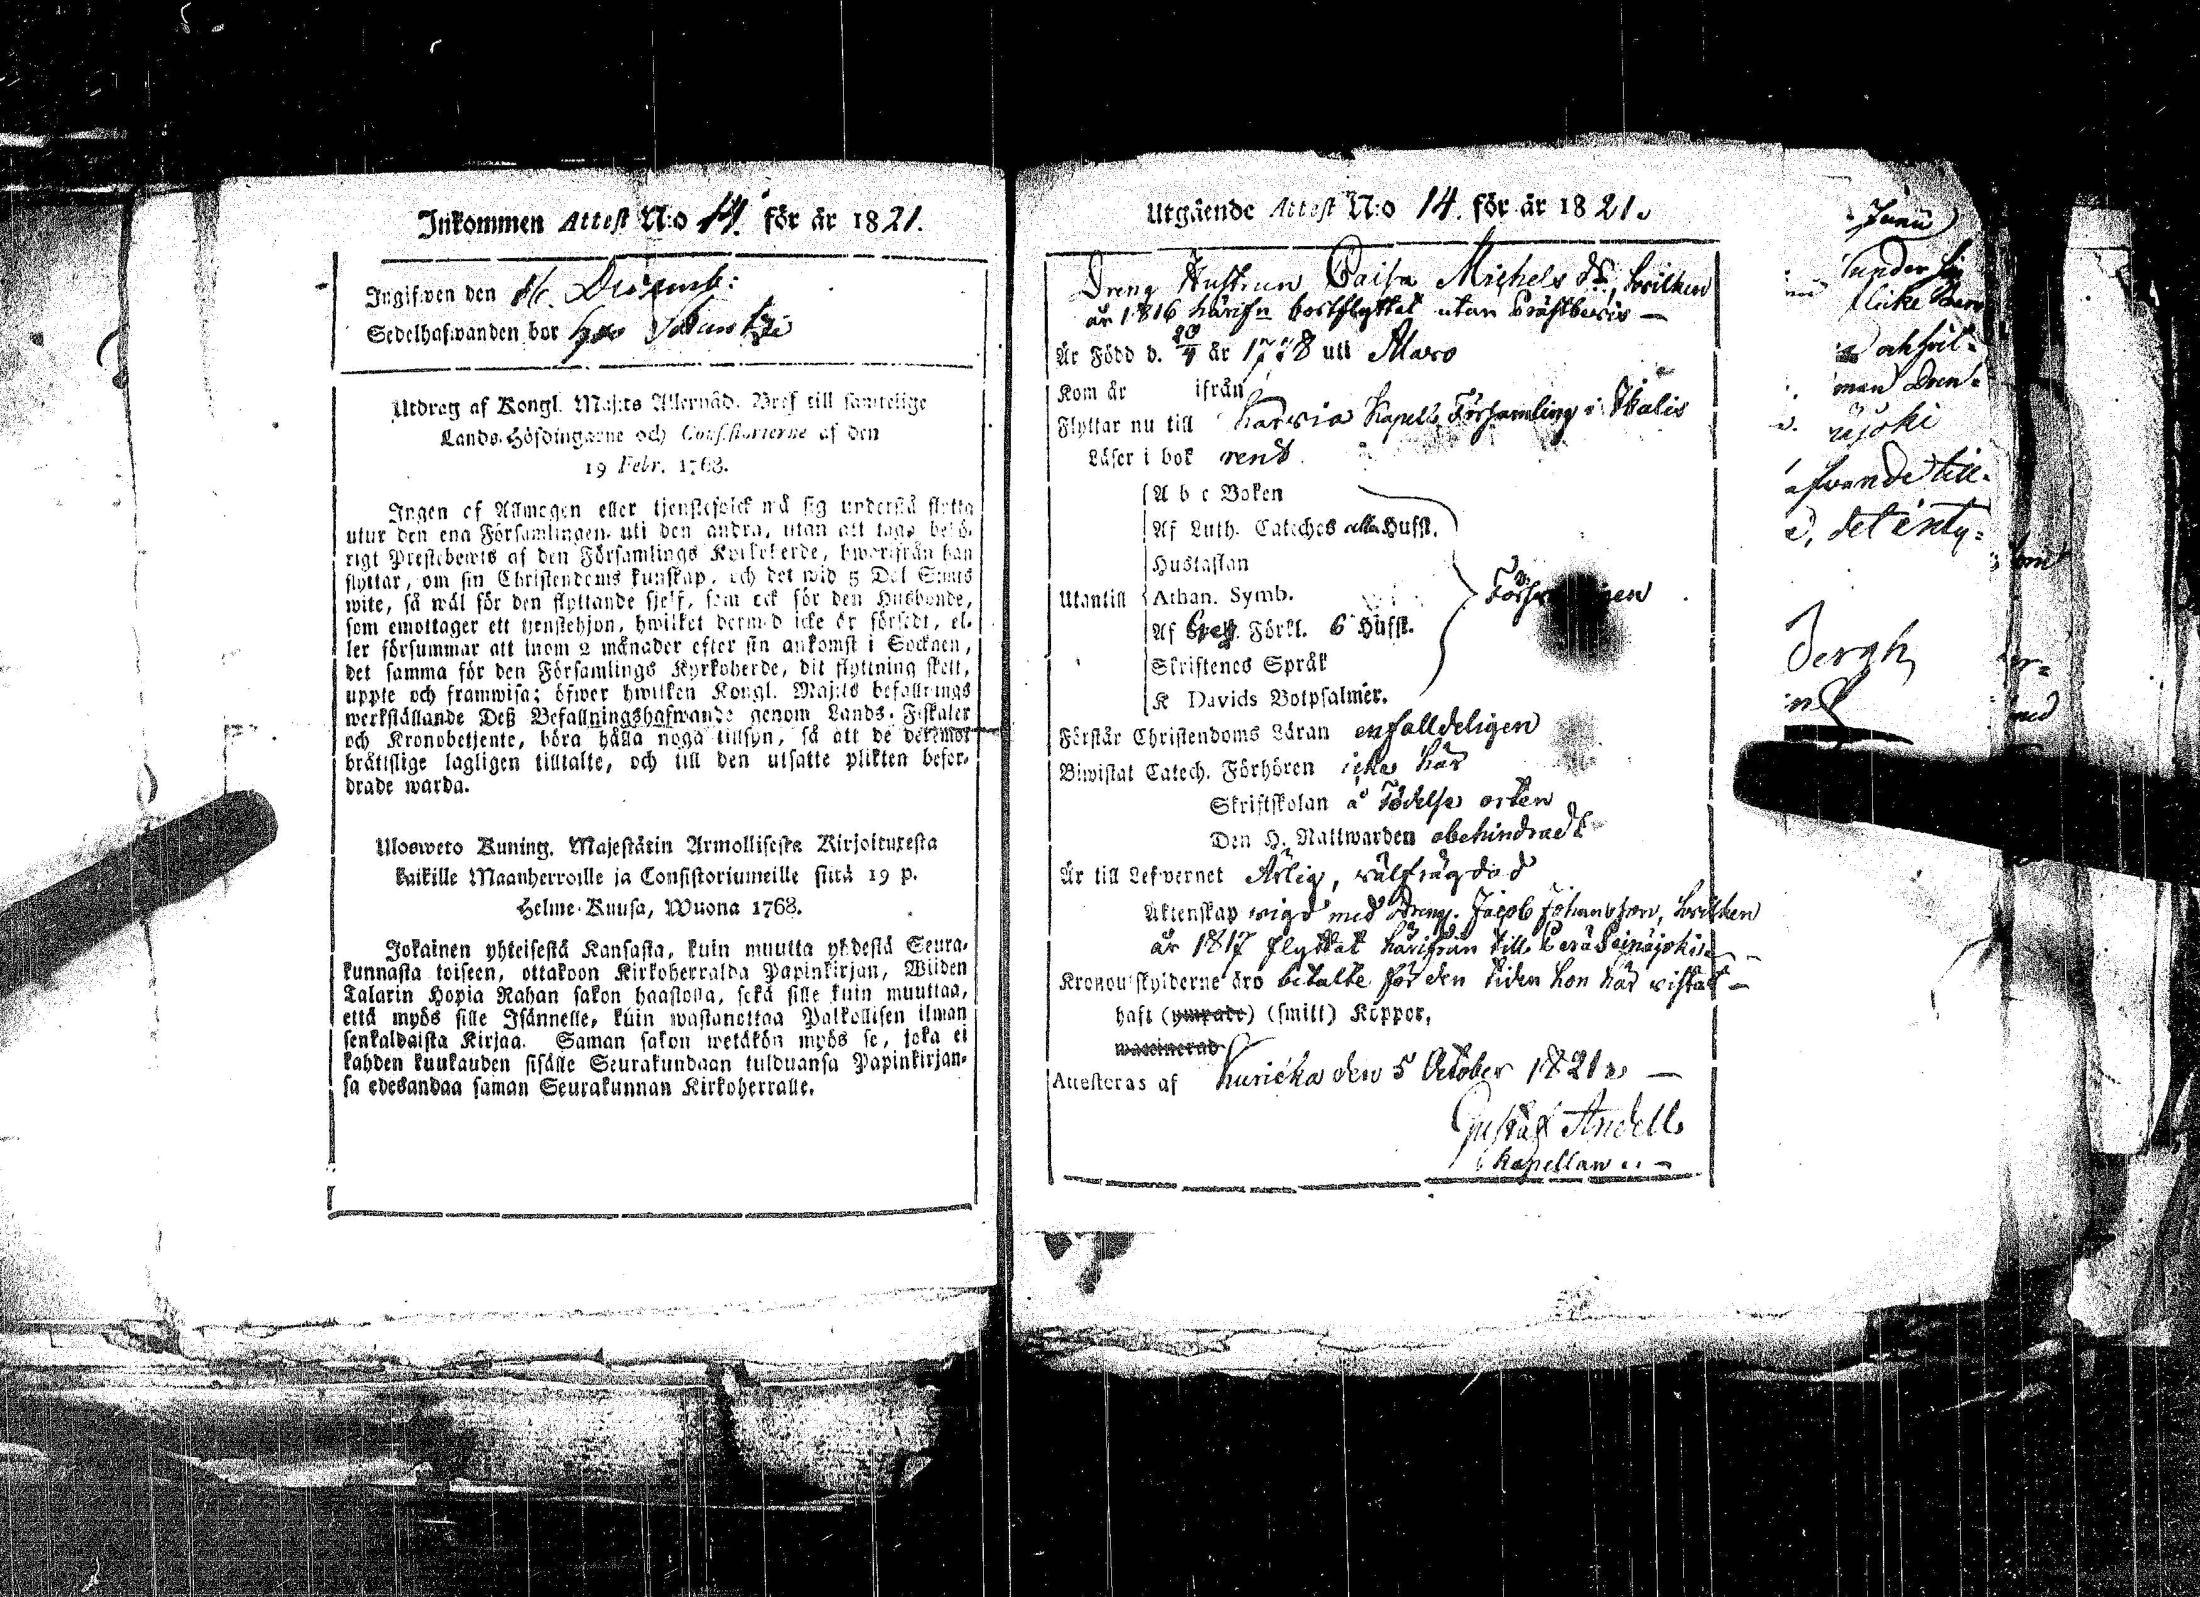 Inkommen Attest N:o 14. för år 1821.
Ingifwen den 16. Decemb:
Sedelhafwanden bor hos
Utdrag af Kongl. Maj:ts Allernåd. Bref till samtelige
Lands-Höfdingarne och Consistorierne af den
19 Febr. 1768.
Ingen af Allmogen eller tjenstefolck må sig understå flytta
utur den ena Församlingen uti den andra, utan att taga behö-
rigt Prestebewis af den Församlings Kyrkoherde, hworifrån han
flyttar, om sin Christendoms kunskap, och det wid 5 Dal. S:mts
wite, så wäl för den flyttande sjelf, som ock för den Husbonde,
som emottager ett tjenstehjon, hwilket dermed icke är försedt, el-
ler försummar att inom 2 månader efter sin ankomst i Socknen,
det samma för den Församlings Kyrkoherde, dit flyttning skett,
uppte och framwisa; öfwer hwilken Kongl. Maj:ts befallnings
werkställande Deß Befallningshafwande genom Lands-Fiskaler
och Kronobetjente, böra hålla noga tillsyn, så att de deremot
brättslige lagligen tilltalte, och till den utsatte plikten befor-
drade warda.
Ulosweto Kuning. Majestätin Armollisesta Kirjoituxesta
kaikille Maanherroille ja Consistoriumeille siitä 19 p.
Helme-Kuusa, Wuona 1768.
Jokainen yhteisestä Kansasta, kuin muutta yhdestä Seura-
kunnasta toiseen, ottakoon Kirkoherralda Papinkirjan, Wiiden
Talarin Hopia Rahan sakon haastolla, sekä sille kuin muuttaa,
että myös sille Isännelle, kuin wastanottaa Palkollisen ilman
senkaldaista Kirjaa. Saman sakon wetäkön myös se, joka ei
kahden kuukauden sisälle Seurakundaan tulduansa Papinkirjan-
sa edesandaa saman Seurakunnan Kirkoherralle.
Utgående Attest N:o 14. för år 1821.
Dreng Hustrun Caisa Michels dr, hvilken
år 1816 härifn bortflyttat utan Prästbevis —
Är Född d. 20/4 år 1778 uti Alavo
Kom år ifrån
Flyttar nu till Karvia Kapells Församling i Ikalis
Läser i bok rent
A b c Boken
Af Luth. Cateches alla Hufst.
Hustaflan
Utantill Athan. Symb. Församlingen
Af Förkl. 6 Hufst.
Skriftenes Språk
K Davids Botpsalmer.
Förstår Christendoms Läran enfalldeligen
Biwistat Catech. Förhören icke här
Skriftskolan å Födelse orten
Den H. Nattwarden obehindradt
Är till Lefwernet Ärlig, välfrägdad
Äktenskap vigd med Dreng. Jacob Johansson, hvilken
år 1817 flyttat härifrån till Peräseinäjoki
Kronoutskylderne äro betalte för den tiden hon här vistat —
haft (ympade) (smitt) Koppor,
waccinerad
Attesteras af Kuricka den 5 October 1821 —
Gustaf Andell
Kapellan
Junii
under
licke
och
man Dren-
äjoki
afvande till-
det inty-
bergh